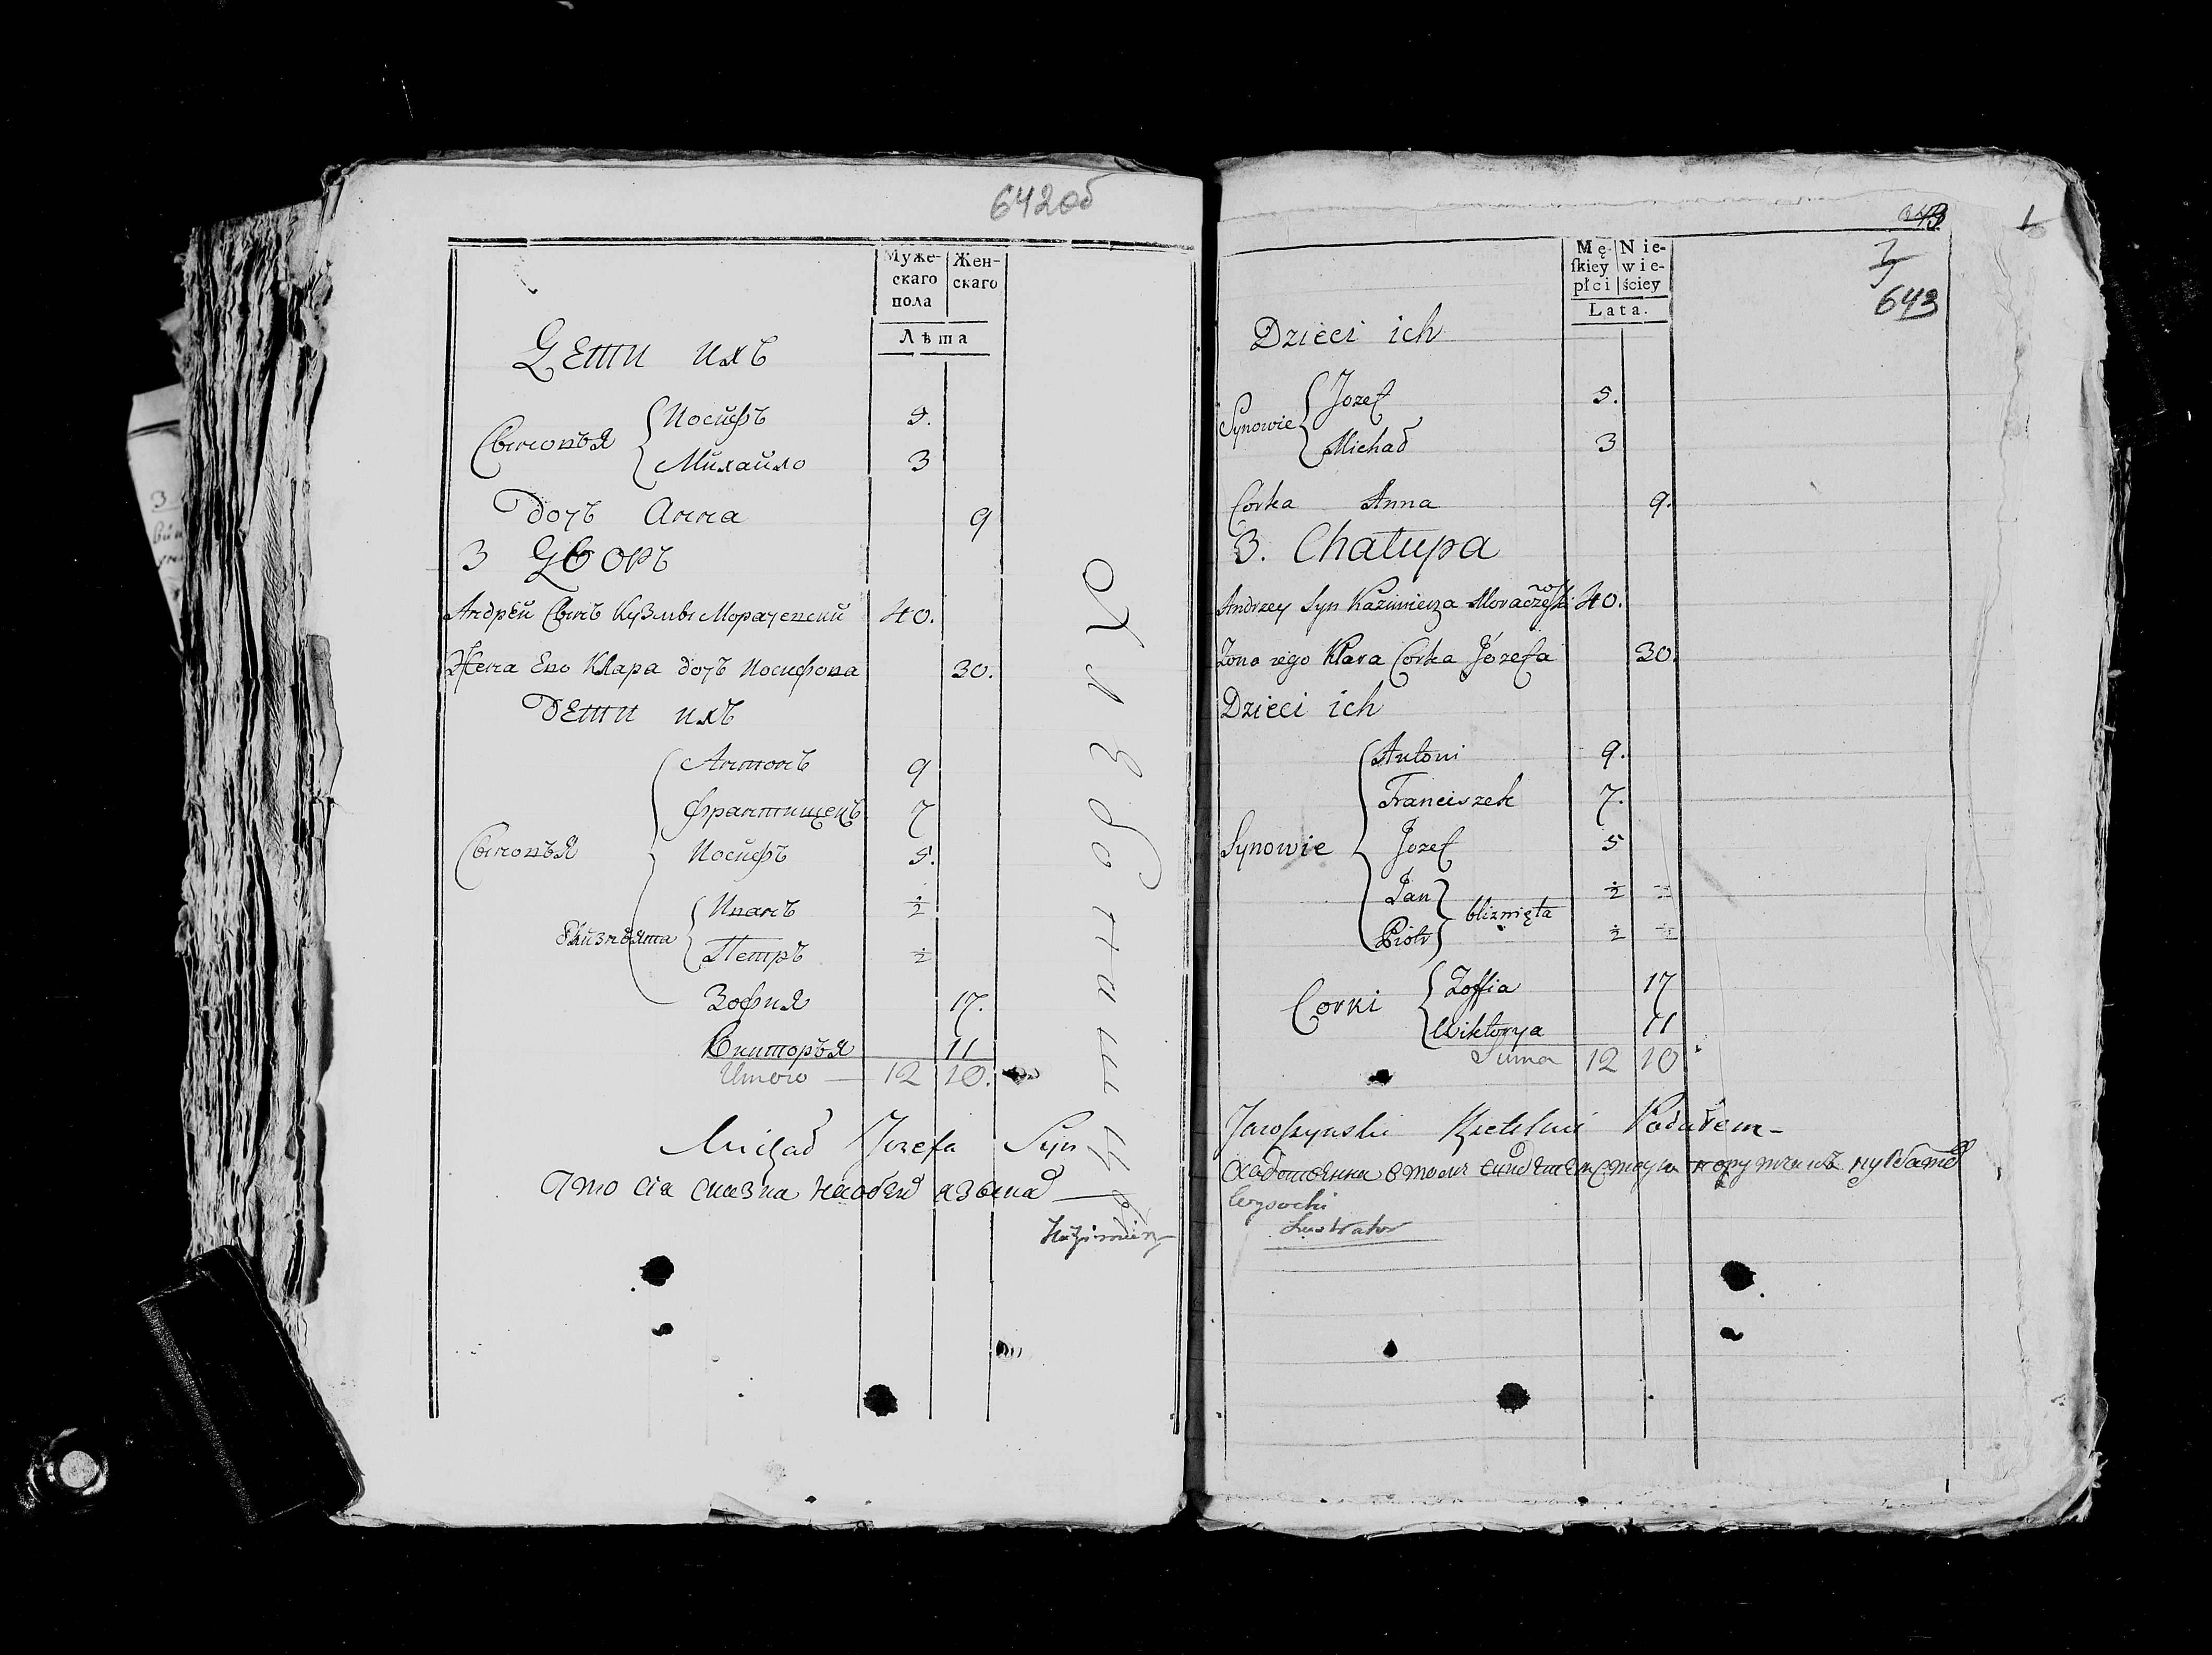 642об
Муже-
скаго
пола
Жен-
скаго
Лѣта
Дети ихъ
Сыновья
Иосифъ 5.
Михайло 3
дочь Анна 9
3 Дворъ
Андрей Сынъ Кузмы Морачевский 40.
Жена Его Клара дочь Иосифова 30.
дети ихъ
Антонъ 9
францишекъ 7
Сыновья Иосифъ 5.
Иванъ ½
близнята
Петръ ½
Зофия 17.
Викторья 11
Итого 12 10.
Michał Jozefa Syn
Что сія сказка
Kazimierz
643
Mę-
ſkiey
płci
Nie-
wie-
ściey
Lata.
Dzieci ich
Synowie
Jozef 5.
Michał 3
Corka Anna 9.
3. Chałupa
Andrzey Syn Kazimierza Moraczewski 40.
Zona iego Klara Corka Józefa 30.
Dzieci ich
Antoni 9.
Franciszek 7.
Synowie Jozef 5
Jan ½
bliznięta
Piotr ½
Corki
Zoffia 17
Wiktorya 11
Suma 12 10
Jaroszynski
Wysocki
Lustrator